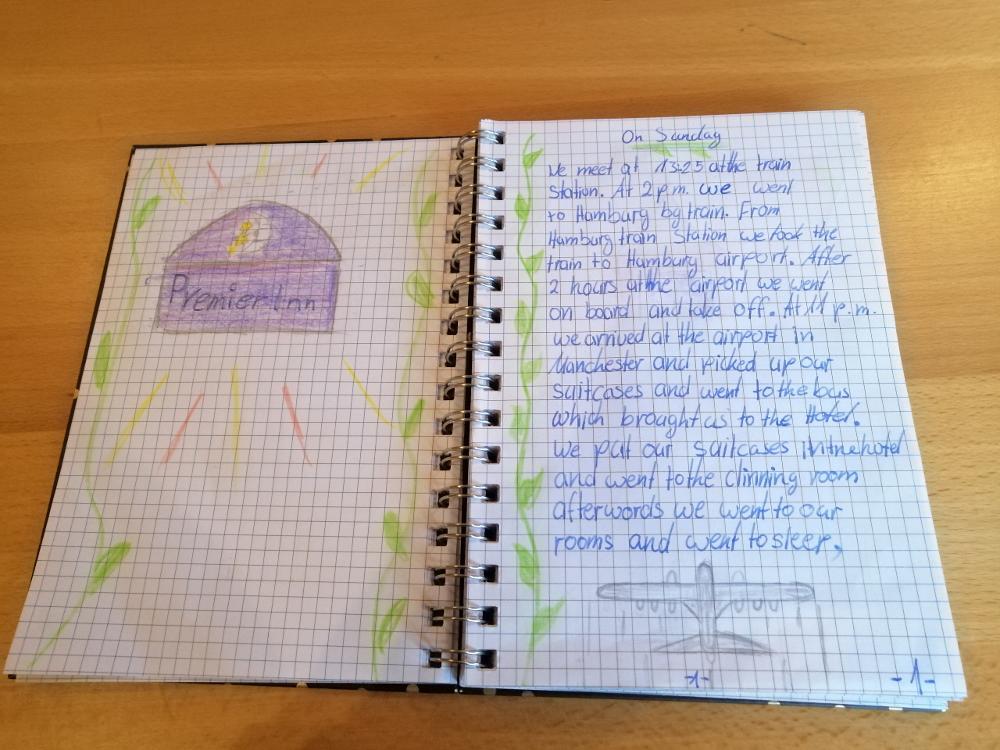 Premier Inn
On Sunday
We meet at 13:25 at the train
station. At 2 p.m. we went
to Hamburg by train. From
Hamburg train station we took the
train to Hamburg airport. After
2 hours at the airport we went
on board and take off. At 11 p.m.
we arrived at the airport in
Manchester and picked up our
suitcases and went to the bus
which brought us to the Hotel.
We put our suitcases in the hotel
and went to the dinning room
afterwords we went to our
rooms and went to sleep.
-1-
-1-